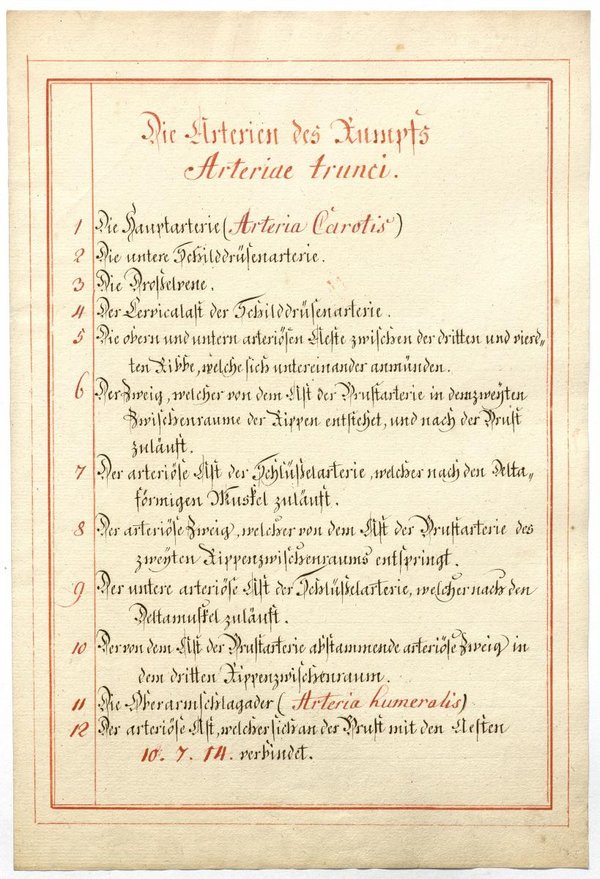 Die Arterien des Rumpfs
Arteriae trunci.
1 Die Hauptarterie (Arteria Carotis)
2 Die untere Schilddrüsenarterie.
3 Die Droßelvene.
4 Der Cervicalast der Schilddrüsenarterie.
5 Die obern und untern arteriösen Aeste zwischen der dritten und vierd-
ten Ribbe, welche sich untereinander anmünden.
6 Der Zweig, welcher von dem Ast der Brustarterie in dem zweyten
Zwischenraume der Rippen entstehet, und nach der Brust
zuläuft.
7 Der arteriöse Ast der Schlüßelarterie, welcher nach den Delta-
förmigen Muskel zuläuft.
8 Der arteriöse Zweig, welcher von dem Ast der Brustarterie des
zweyten Rippenzwischenraums entspringt.
9 Der untere arteriöse Ast der Schlüßelarterie, welcher nach den
Deltamuskel zuläuft.
10 Der von dem Ast der Brustarterie abstammende arteriöse Zweig in
dem dritten Rippenzwischenraum.
11 Die Oberarmschlagader (Arteria humeralis)
12 Der arteriöse Ast, welcher sich an der Brust mit den Aesten
10. 7. 14. verbindet.